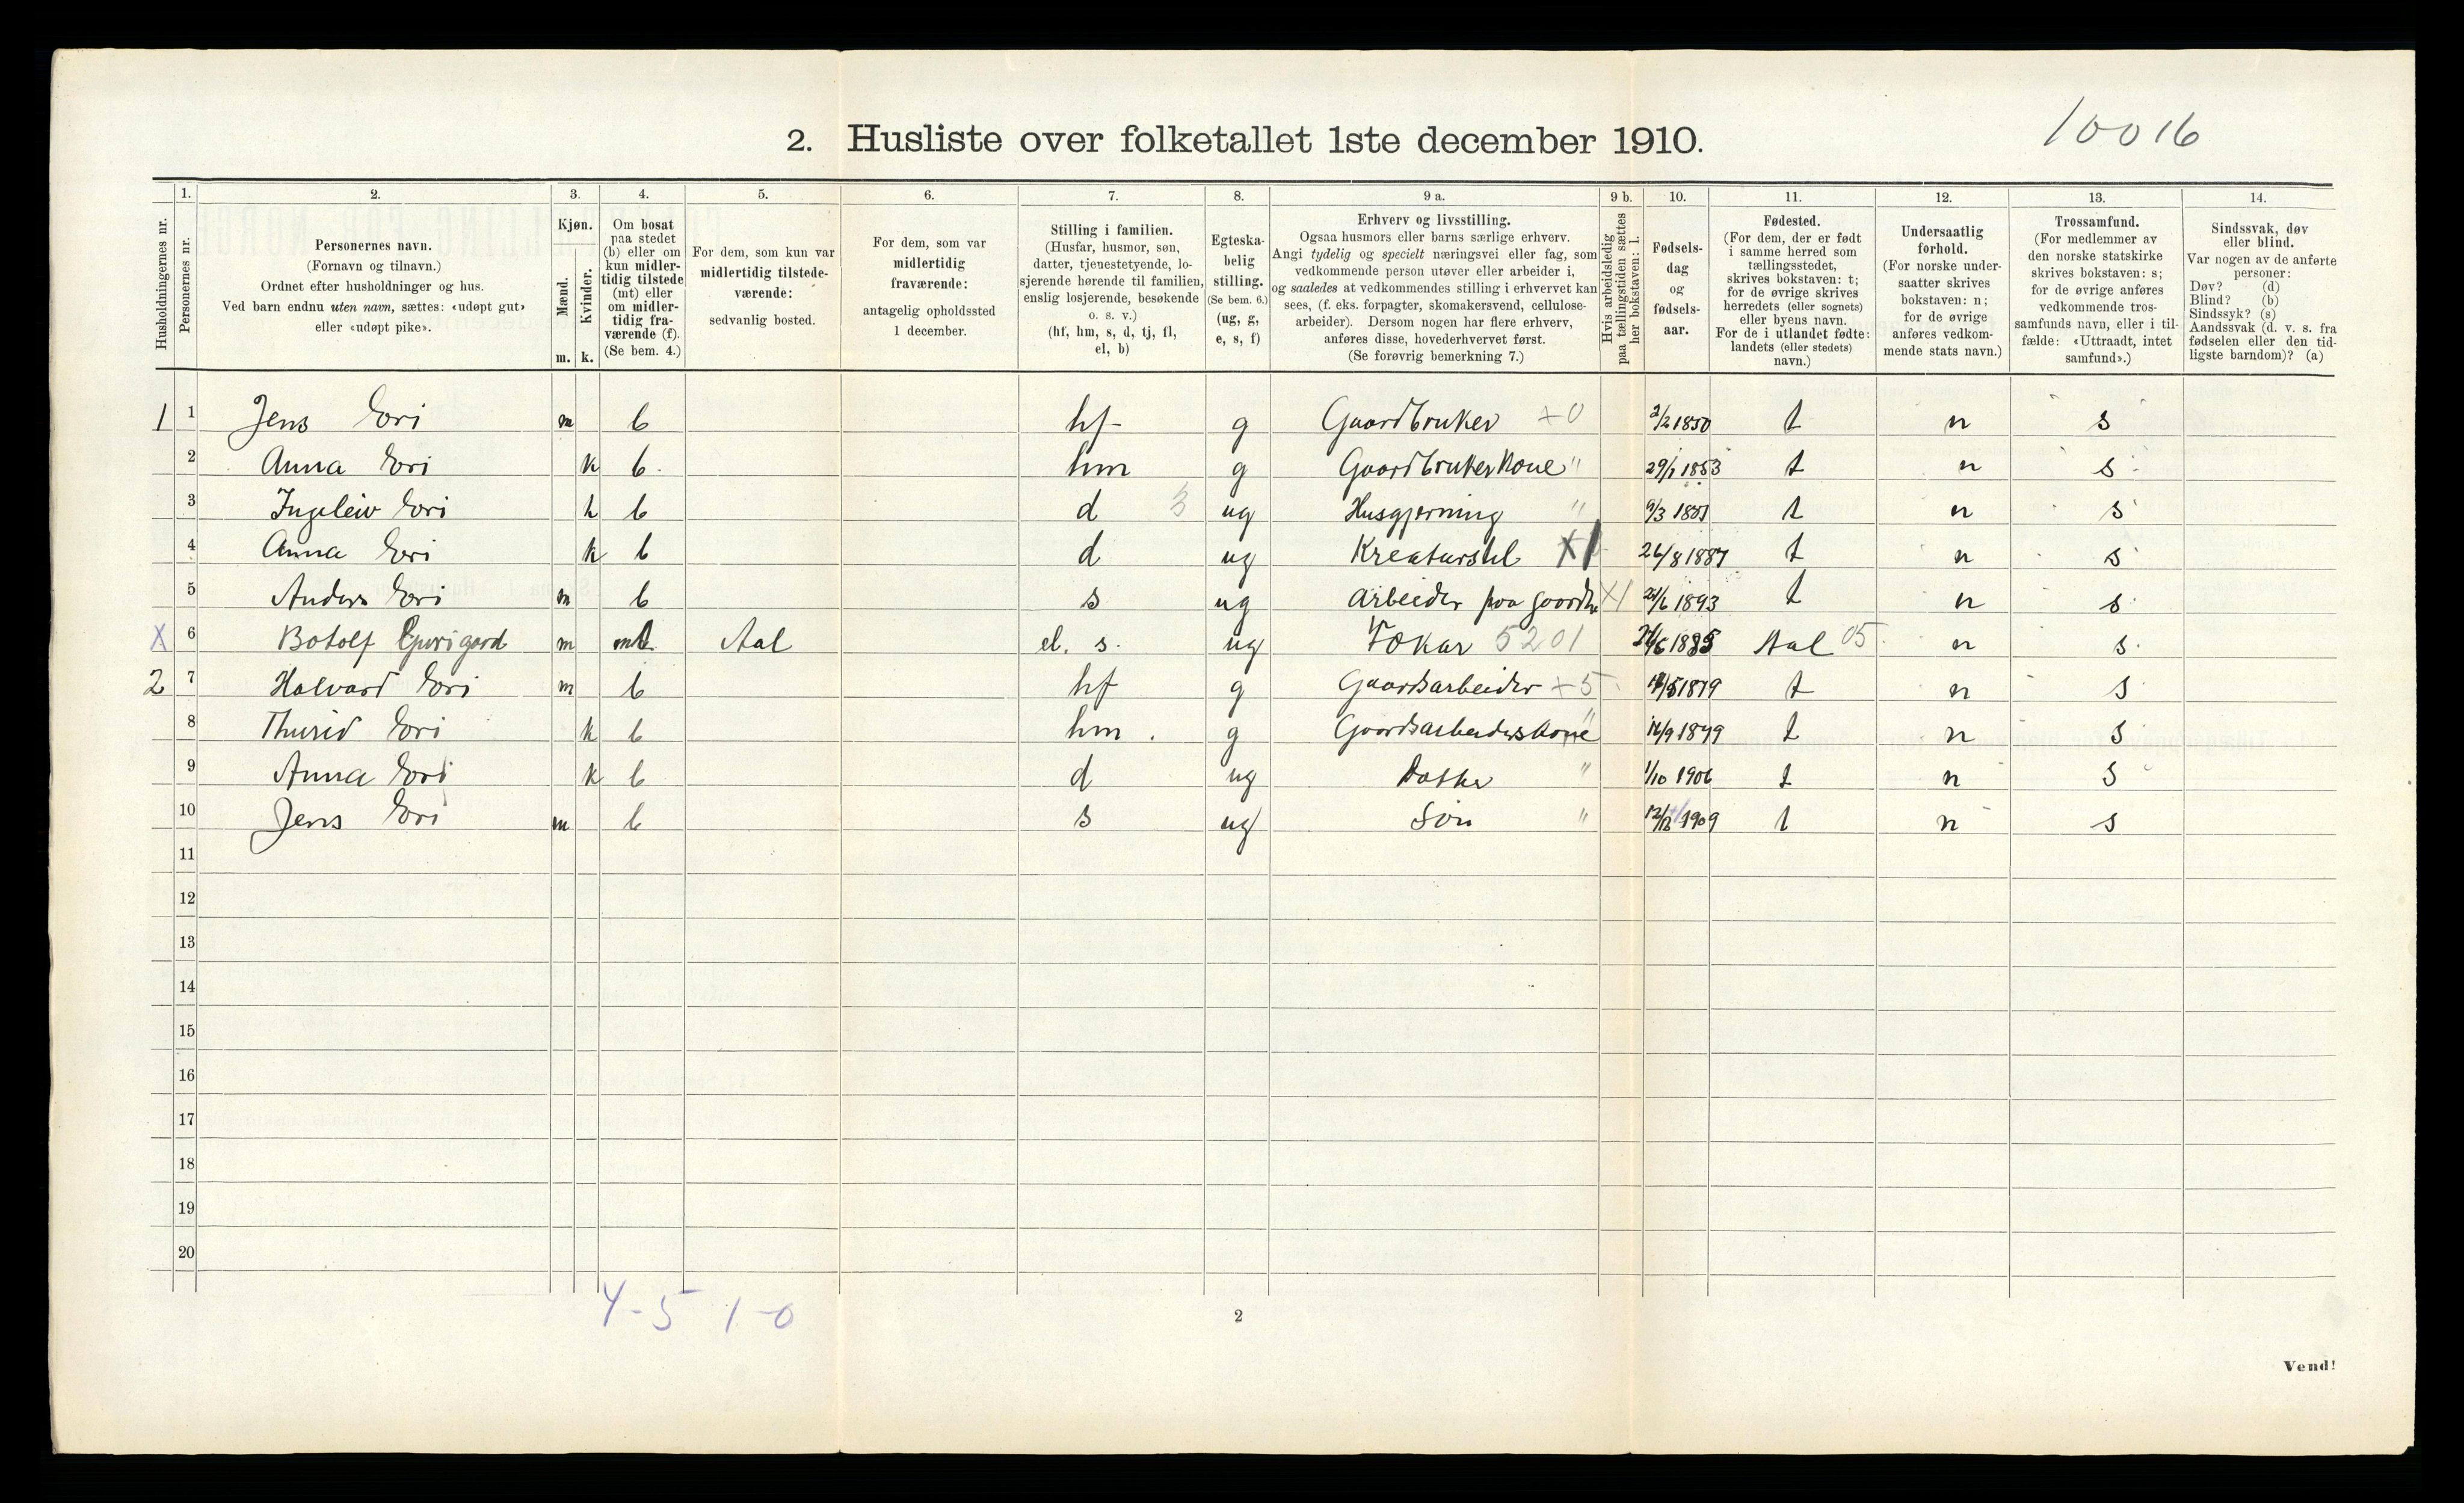 10016
2. Husliste over folketallet 1ste december 1910.
Husholdningernes nr.
1.
Personernes nr.
2.
Personernes navn.
(Fornavn og tilnavn.)
Ordnet efter husholdninger og hus.
Ved barn endnu uten navn, sættes: «udøpt gut»
eller «udøpt pike».
3.
Kjøn.
Mænd.
Kvinder.
m. k.
4.
Om bosat
paa stedet
(b) eller om
kun midler-
tidig tilstede
(mt) eller
om midler-
tidig fra-
værende (f).
(Se bem. 4.)
5.
For dem, som kun var
midlertidig tilstede-
værende:
sedvanlig bosted.
6.
For dem, som var
midlertidig
fraværende:
antagelig opholdssted
1 december.
7.
Stilling i familien.
(Husfar, husmor, søn,
datter, tjenestetyende, lo-
sjerende hørende til familien,
enslig losjerende, besøkende
o. s. v.)
(hf, hm, s, d, tj, fl,
el, b)
8.
Egteska-
belig
stilling.
(Se bem. 6.)
(ug, g,
e, s, f)
9 a.
Erhverv og livsstilling.
Ogsaa husmors eller barns særlige erhverv.
Angi tydelig og specielt næringsvei eller fag, som
vedkommende person utøver eller arbeider i,
og saaledes at vedkommendes stilling i erhvervet kan
sees, (f. eks. forpagter, skomakersvend, cellulose-
arbeider). Dersom nogen har flere erhverv,
anføres disse, hovederhvervet først.
(Se forøvrig bemerkning 7.)
9 b.
Hvis arbeidsledig
paa tællingstiden sættes
her bokstaven: l.
10.
Fødsels-
dag
og
fødsels-
aar.
11.
Fødested.
(For dem, der er født
i samme herred som
tællingsstedet,
skrives bokstaven: t;
for de øvrige skrives
herredets (eller sognets)
eller byens navn.
For de i utlandet fødte:
landets (eller stedets)
navn.)
12.
Undersaatlig
forhold.
(For norske under-
saatter skrives
bokstaven: n;
for de øvrige
anføres vedkom-
mende stats navn.)
13.
Trossamfund.
(For medlemmer av
den norske statskirke
skrives bokstaven: s;
for de øvrige anføres
vedkommende tros-
samfunds navn, eller i til-
fælde: «Uttraadt, intet
samfund».)
14.
Sindssvak, døv
eller blind.
Var nogen av de anførte
personer:
Døv? (d)
Blind? (b)
Sindssyk? (s)
Aandssvak (d. v. s. fra
fødselen eller den tid-
ligste barndom)? (a)
1 1 Jens m b hf g Gaardbruker +0 2/2 1850 t n s
2 Anna k b hm g Gaardbrukerkone " 29/1 1853 t n s
3 Ingeleiv k b d 3 ug Husgjerning " 9/3 t n s
4 Anna k b d ug Kreaturstel X 26/8 1887 t n s
5 Anders m b s ug Arbeider paa gaarden X1 1893 t n s
X 6 Botolf m mt Aal el. s. ug 5201 Aal 05 n s
2 7 Halvard m b hf g Gaardsarbeider +5 1879 t n s
8 Thurid k b hm g Gaardsarbeiderskone " t n s
9 Anna k b d ug Datter " 1/10 1906 t n s
10 Jens m b s ug Søn " 1909 t n s
11
12
13
14
15
16
17
18
19
20
4-5 1-0
2
Vend!